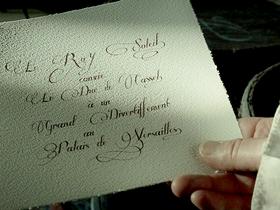 Le Roy Soleil
convie
Le Duc de Nassels
a un
Grand Divertissement
au
Palais de Versailles